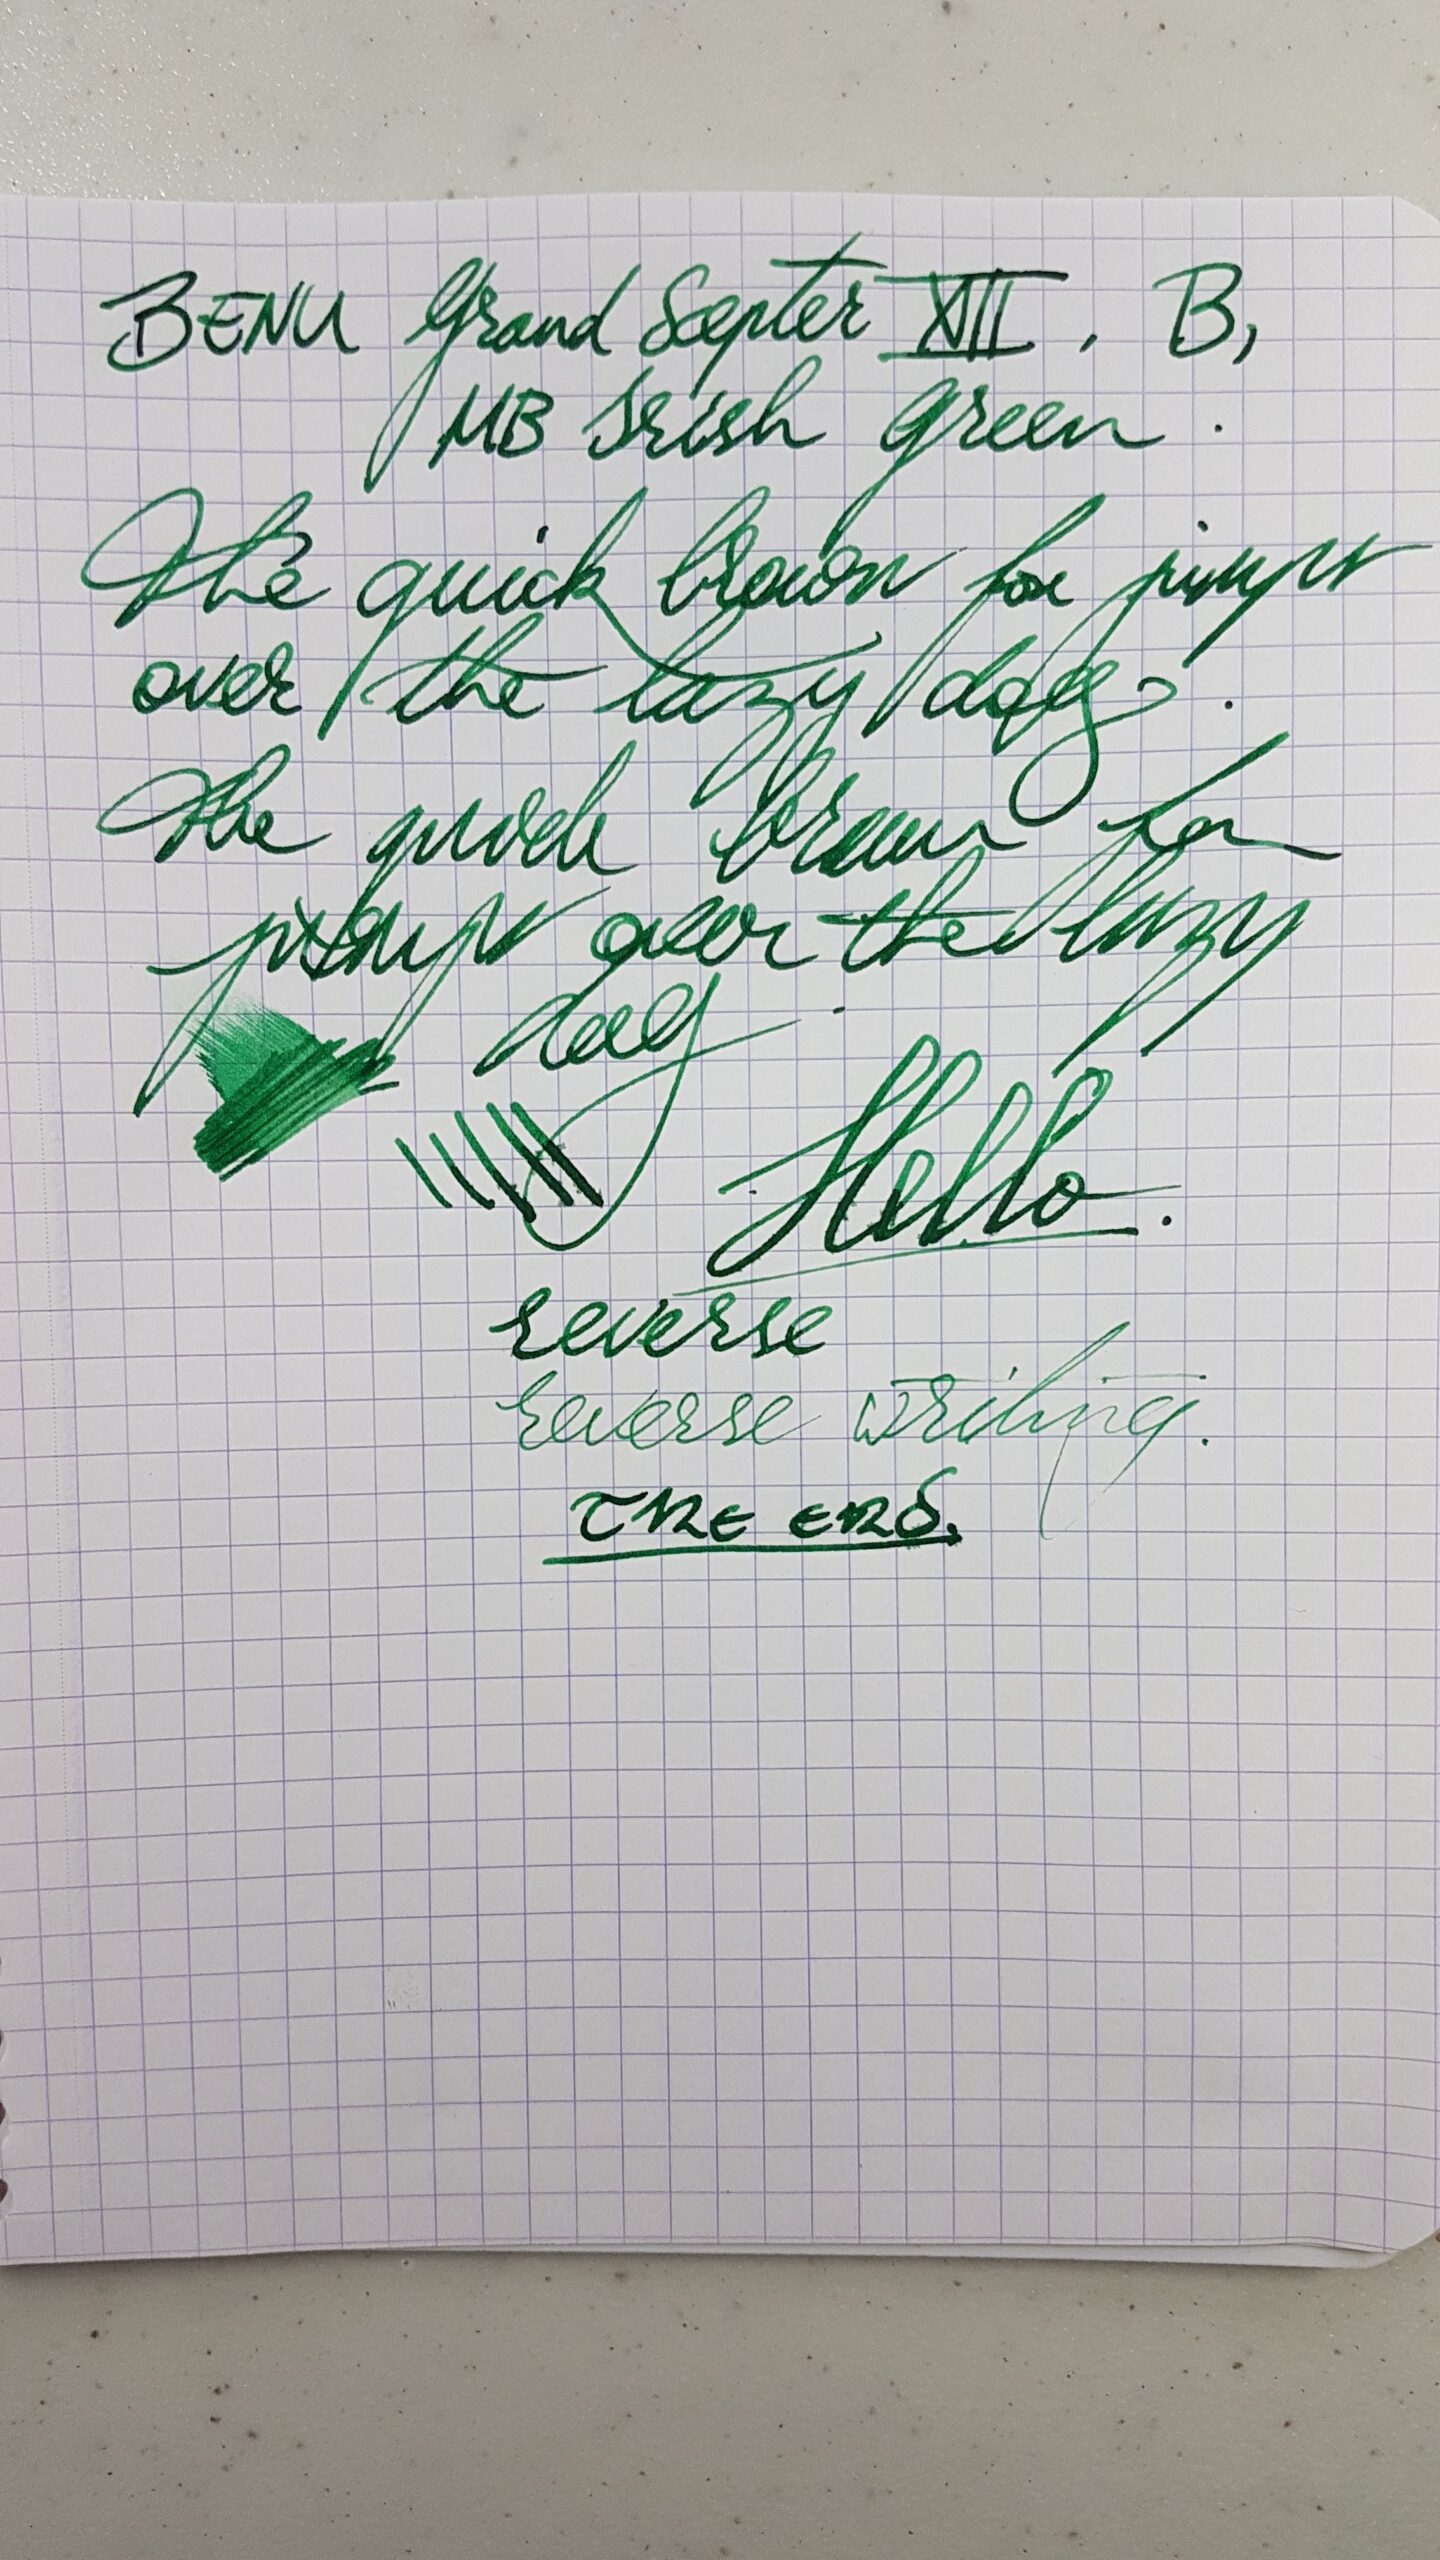 BENU Grand Scepter XVII, B,
MB Irish green.
The quick brown fox jumps
over the lazy dog.
The quick brown fox
jumps over the lazy
dog.
Hello.
reverse
reverse writing.
The end.